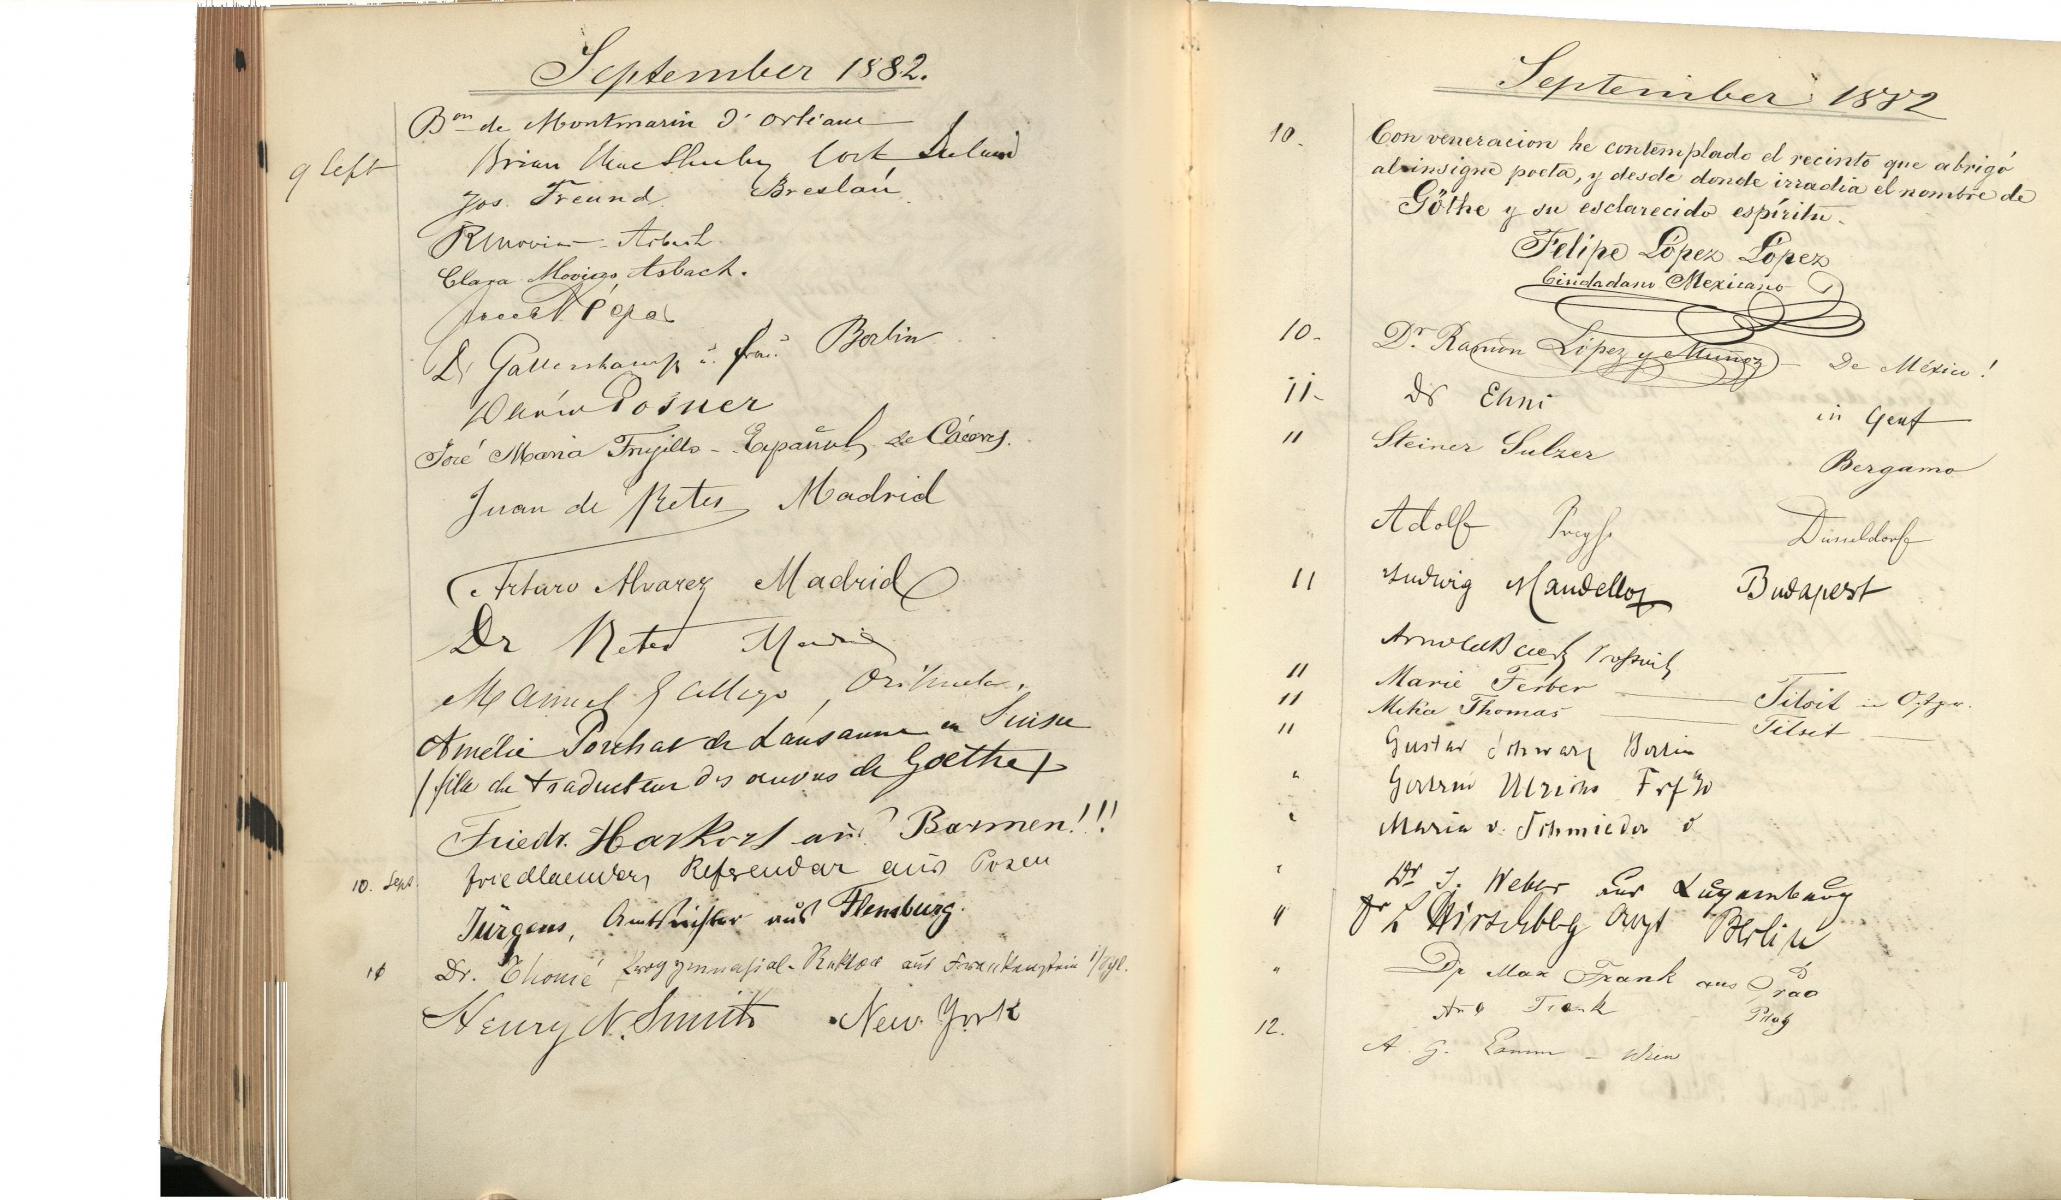 September 1882.
Bon de Montmarin d'Orléans
9 Sept Brian Mac Sheehy Cork Ireland
Jos. Freund Breslau
Asbach
Clara Asbach.
Dr u. Frau Berlin
Posner
José Maria Trujillo - Español de Cáceres.
Juan de Retes Madrid
Arturo Alvarez Madrid
Dr Retes Madrid
Manuel Gallego, Orihuela.
Amélie Porchat de Lausanne en Suisse
(fille du traducteur des œuvres de Goethe)
Friedr. Harkort aus Barmen!!!
10. Sept. Friedlaender, Referendar aus Posen
Jürgens, Amtsrichter aus Flensburg.
10 Dr. Thomé Progymnasial-Rektor aus Frankenstein
Henry N. Smith New York
September 1882
10. Con veneracion he contemplado el recinto que abrigó
al insigne poeta, y desde donde irradia el nombre de
Göthe y su esclarecido espíritu.
Felipe López López
Ciudadano Mexicano
10- Dr. Ramón López y Muñoz - De México!
11- Dr Ehni in Genf
" Steiner Sulzer Bergamo
Adolf Düsseldorf
11 Ludwig Budapest
Arnold
" Marie Ferber Tilsit in Ostpr.
" Thomas Tilsit
" Gustav Schwarz Berlin
" Ulrichs
" Maria v. Schmieden
" Dr J. Weber aus Luxemburg
" Dr L Hirschberg Arzt Berlin
" Dr Max Frank aus Prag
Frank Prag
12. A. G. - Wien